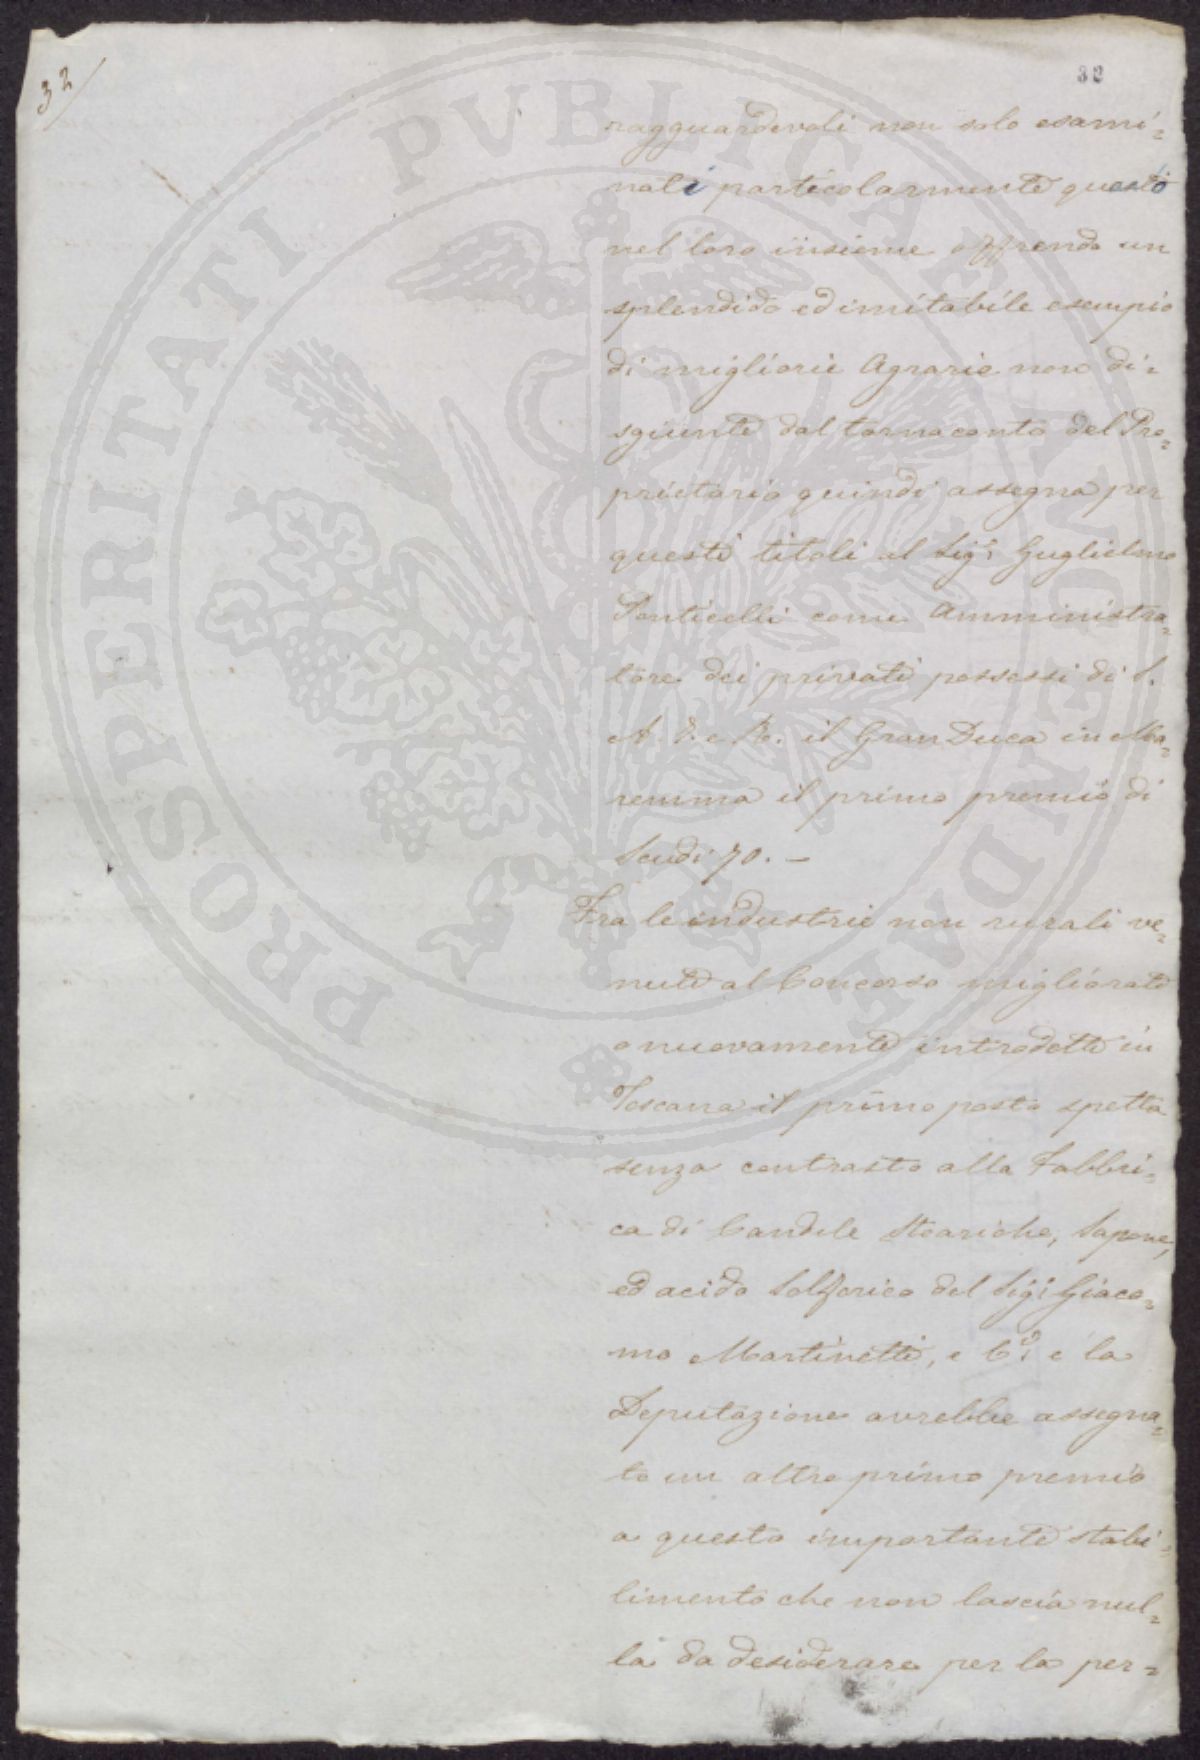 32
32
ragguardevoli non solo esami=
nati particolarmente questo
nel loro insieme offrendo un
splendido ed imitabile esempio
di migliorie Agrarie non di=
sgiunte dal tornaconto del Pro=
prietario quindi assegna per
questi titoli al Sigr. Guglielmo
Ponticelli come Amministra=
tore dei privati possessi di S.
A. I. e R. il Gran Duca in Ma=
remma il primo premio di
Scudi 70. –
Fra le industrie non rurali ve=
nute al Concorso migliorate
o nuovamente introdotte in
Toscana il primo posto spetta
senza contrasto alla Fabbri=
ca di Candele Steariche, Sapone,
ed acido Solforico del Sigr. Giaco=
mo Martinetti, e C.º e la
Deputazione avrebbe assegna=
to un altro primo premio
a questo importante stabi=
limento che non lascia nul=
la da desiderare per la per=
PROSPERITATI PUBLICAE AUGENDAE